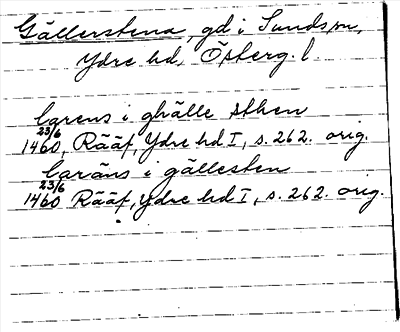 Gällerstena, gd i Sunds sn,
Ydre hd, Österg. l.
larens i ghälle sthen
23/6 1460, Rääf, Ydre hd I, s. 262. orig.
laräns i gällesten
23/6 1460 Rääf, Ydre hd I, s. 262. orig.